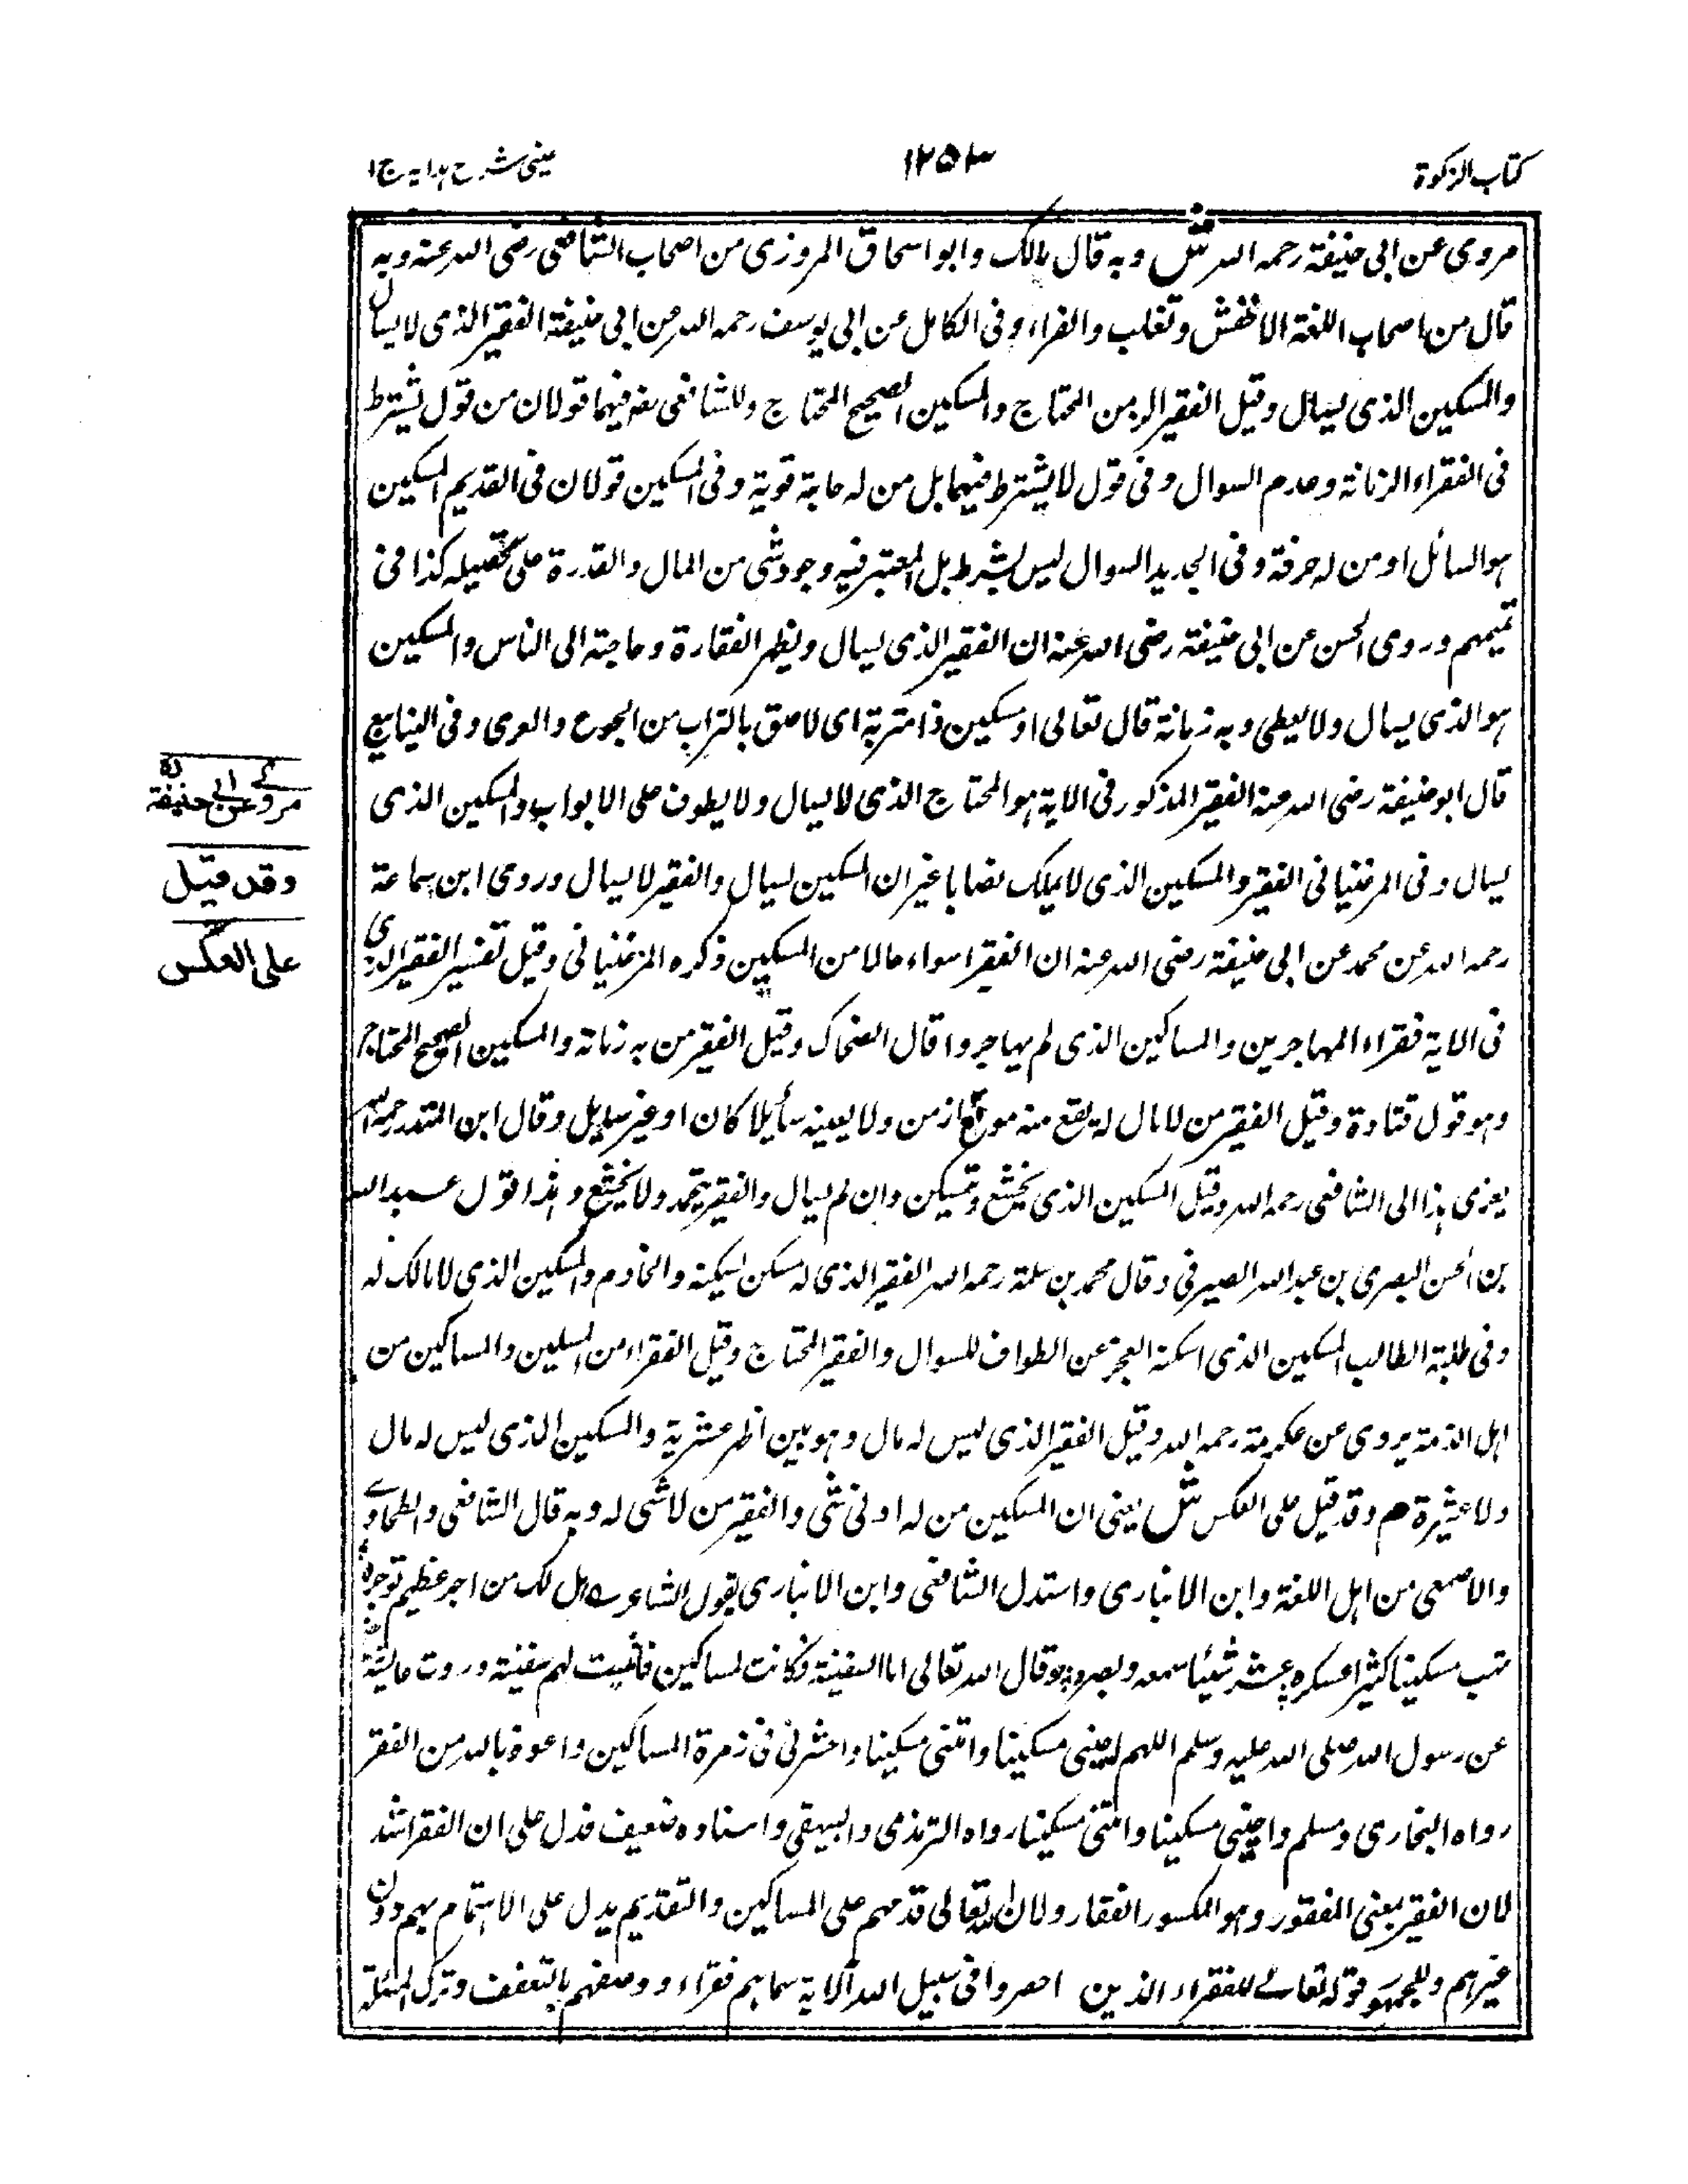 كتاب الزكوة
١٢٥٣
عينى شرح هدايه ج ١
مروى عن ابى حنيفة رحمه الله ش وبه قال مالك وابو اسحاق المروزى من اصحاب الشافعى رضى الله عنه وبه
قال من اصحاب اللغة الاخفش وثعلب والفراء وفى الكامل عن ابى يوسف رحمه الله عن ابى حنيفة الفقير الذى لا يسأل
والمسكين الذى يسأل وقيل الفقير الزمن المحتاج والمسكين الصحيح المحتاج وللشافعى فيهما قولان من قول يشترط
فى الفقراء الزمانة وعدم السوال وفى قول لا يشترط فيهما بل من له حاجة قوية وفى المسكين قولان فى القديم المسكين
هو السائل او من له حرفة وفى الجديد السوال ليس بشرط بل المعتبر فيه وجود شى من المال والقدرة على تحصيله كذا فى
تتميمهم وروى الحسن عن ابى حنيفة رضى الله عنه ان الفقير الذى يسال ويظهر الفقارة وحاجته الى الناس والمسكين
هو الذى يسال ولا يعطى وبه زمانة قال تعالى او مسكين ذا متربة اى لاصق بالتراب من الجوع والعرى وفى الينابيع
قال ابو حنيفة رضى الله عنه الفقير المذكور فى الاية هو المحتاج الذى لا يسال ولا يطوف على الابواب والمسكين الذى
يسال وفى المرغنيانى الفقير والمسكين الذى لا يملك نصابا غير ان المسكين يسال والفقير لا يسال وروى ابن سماعة
رحمه الله عن محمد عن ابى حنيفة رضى الله عنه ان الفقير اسواء حالا من المسكين ذكره المرغنيانى وقيل تفسير الفقير الذى
فى الاية فقراء المهاجرين والمساكين الذى لم يهاجروا قال الضحاك وقيل الفقير من به زمانة والمسكين الصحيح المحتاج
وهو قول قتادة وقيل الفقير من لا مال له يقع منه موقعا زمن ولا يعينه سأيلا كان او غير سايل وقال ابن المنذر رحمه الله
يعزى هذا الى الشافعى رحمه الله وقيل المسكين الذى يخشع وتمسكن وان لم يسال والفقير يتحمد ولا يخشع وهذا قول عبيد الله
بن الحسن البصرى بن عبد الله الصيرفى وقال محمد بن سلمة رحمه الله الفقير الذى له مسكن يسكنه والخادم والمسكين الذى لا مالك له
وفى طلبة الطالب المسكين الذى اسكنه العجز عن الطواف للسوال والفقير المحتاج وقيل الفقراء من المسلمين والمساكين من
اهل الذمة يروى عن عكرمة رحمه الله وقيل الفقير الذى ليس له مال وهو بين اظهر عشيرته والمسكين الذى ليس له مال
ولا عشيرة م وقد قيل على العكس ش يعنى ان المسكين من له ادنى شى والفقير من لا شى له وبه قال الشافعى والطحاوى
والاصمعى من اهل اللغة وابن الانبارى واستدل الشافعى وابن الانبارى بقول الشاعر ے هل لك من اجر عظيم توجره
مسكينا كثيرا عسكره عشر شيئا سمعه وبصره وقال الله تعالى اما السفينة فكانت لمساكين فاثبت لهم سفينة وروت عايشة
عن رسول الله صلى الله عليه وسلم اللهم احينى مسكينا وامتنى مسكينا واحشرنى فى زمرة المساكين واعوذ بالله من الفقر
رواه البخارى ومسلم واحينى مسكينا وامتنى مسكينا رواه الترمذى والبيهقى واسناده ضعيف فدل على ان الفقر اشد
لان الفقير بمعنى المفقور وهو المكسور الفقار ولان الله تعالى قدمهم على المساكين والتقديم يدل على الاهتمام بهم دون
غيرهم وللجمهور قوله تعالے للفقراء الذين احصروا فى سبيل الله الاية سماهم فقراء ووصفهم بالتعفف وترك المسئلة
مروى عن ابى حنيفة
وقد قيل
على العكس